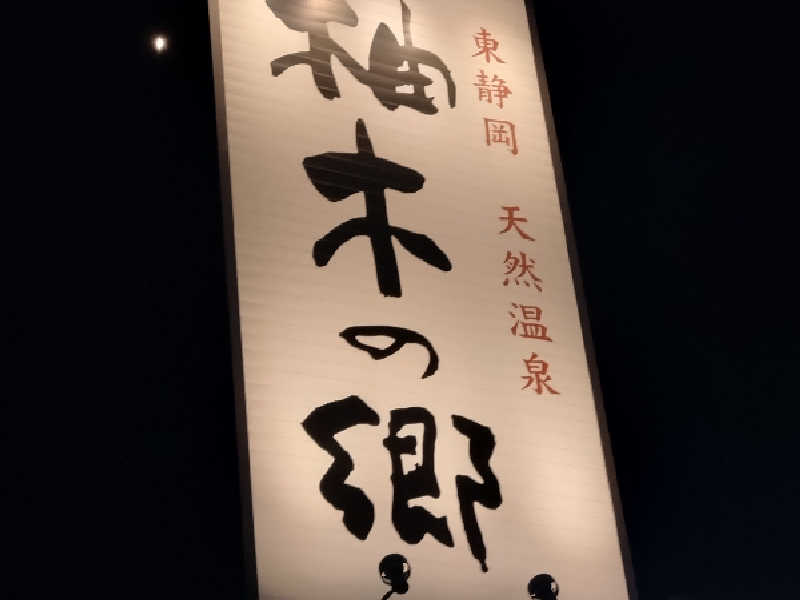 東静岡 天然温泉
柚木の郷